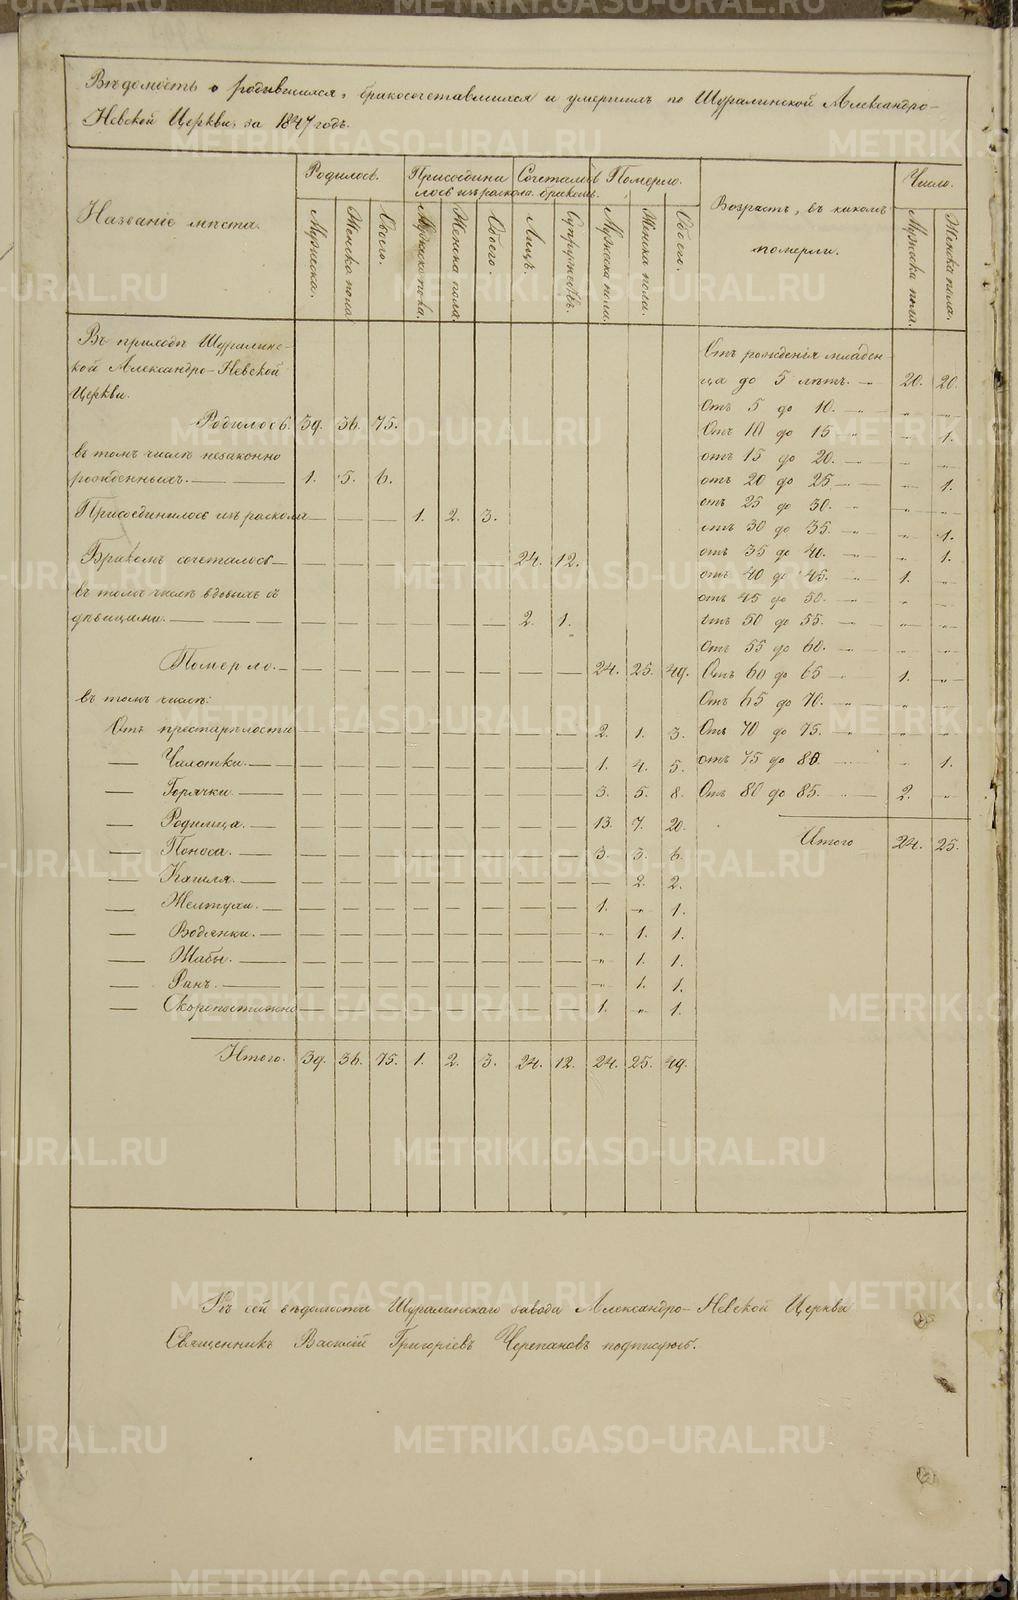 Вѣдомость о родившихся, бракосочетавшихся и умершихъ по Шуралинской Александро-
Невской Церкви, за 1847 годъ.
Названіе мѣста.
Родилось.
Присоедини
лось изъ раскола.
Сочеталось
бракомъ.
Померло.
Возрастъ, въ какомъ
померли.
Число.
Мужеска.
Женска пола
Обоего.
Мужеска пола.
Женска пола.
Обоего.
Лицъ.
Супружествъ.
Мужеска пола.
Женска пола.
Обоего.
Мужеска пола.
Женска пола.
Въ приходѣ Шуралинс-
кой Александро-Невской
Церкви.
Родилось. 39. 36. 75.
въ томъ числѣ незаконно
рожденныхъ. — — 1. 5. 6.
Присоединилось изъ раскола — — — 1. 2. 3.
Бракомъ сочеталось — — — — — — — 24. 12.
въ томъ числѣ вдовыхъ съ
дѣвицами. — — — — — — 2. 1.
Померло. — — — — — — — — — 24. 25. 49.
въ томъ числѣ:
Отъ престарѣлости — — — — — — — — 2. 1. 3.
— Чахотки. — — — — — — — — — 1. 4. 5.
— Горячки. — — — — — — — — — 3. 5. 8.
— Родимца. — — — — — — — — — 13. 7. 20.
— Поноса. — — — — — — — — — 3. 3. 6.
— Кашля. — — — — — — — — — — 2. 2.
— Желтухи. — — — — — — — — — 1. „ 1.
— Водянки. — — — — — — — — — „ 1. 1.
— Жабы. — — — — — — — — — „ 1. 1.
— Ранъ. — — — — — — — — — „ 1. 1.
— Скоропостижно — — — — — — — — 1. „ 1.
Итого. 39. 36. 75. 1. 2. 3. 24. 12. 24. 25. 49.
Отъ рожденія младен
ца до 5 лѣтъ. — 20. 20.
Отъ 5 до 10. — „ „
Отъ 10 до 15 „ „ 1.
отъ 15 до 20. — „ „
отъ 20 до 25 — „ 1.
отъ 25 до 30. — „ „
отъ 30 до 35. — „ 1.
отъ 35 до 40. — „ 1.
отъ 40 до 45. — 1. „
отъ 45 до 50. — „ „
отъ 50 до 55. — „ „
Отъ 55 до 60. — „ „
Отъ 60 до 65 — 1. „
Отъ 65 до 70. — „ „
Отъ 70 до 75. — „ „
отъ 75 до 80. — „ 1.
Отъ 80 до 85. — 2. „
Итого 24. 25.
Къ сей вѣдомости Шуралинскаго завода Александро-Невской Церкви
Священникъ Василій Григоріевъ Черепановъ подписуюсь.
METRIKI.GASO-URAL.RU